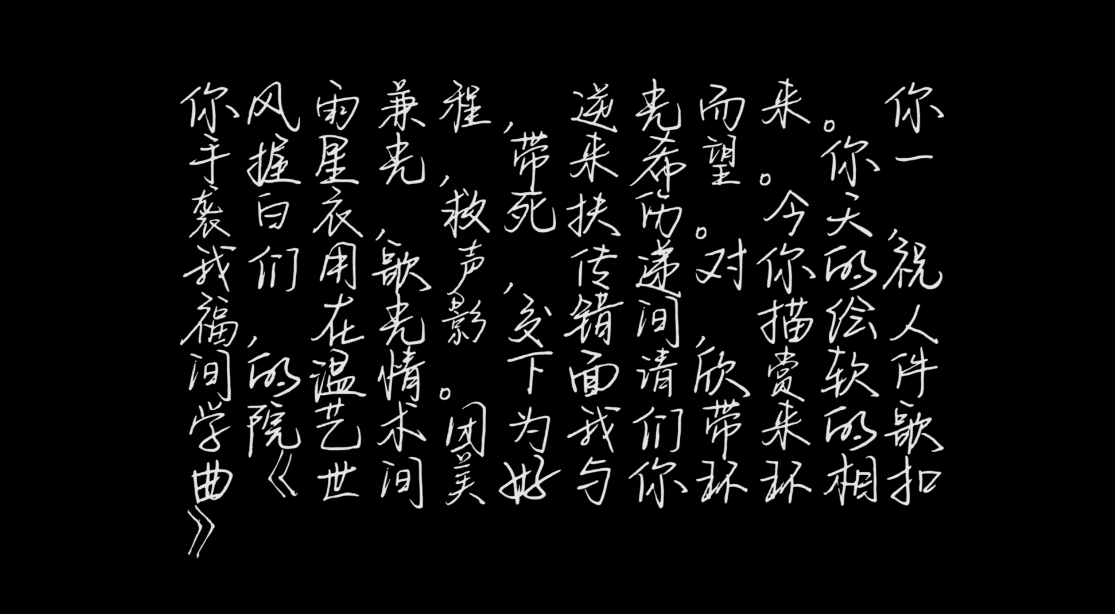 你风雨兼程，逆光而来。你
手握星光，带来希望。你一
袭白衣，救死扶伤。今天，
我们用歌声，传递对你的祝
福，在光影交错间，描绘人
间的温情。下面请欣赏软件
学院艺术团为我们带来的歌
曲《世间美好与你环环相扣
》